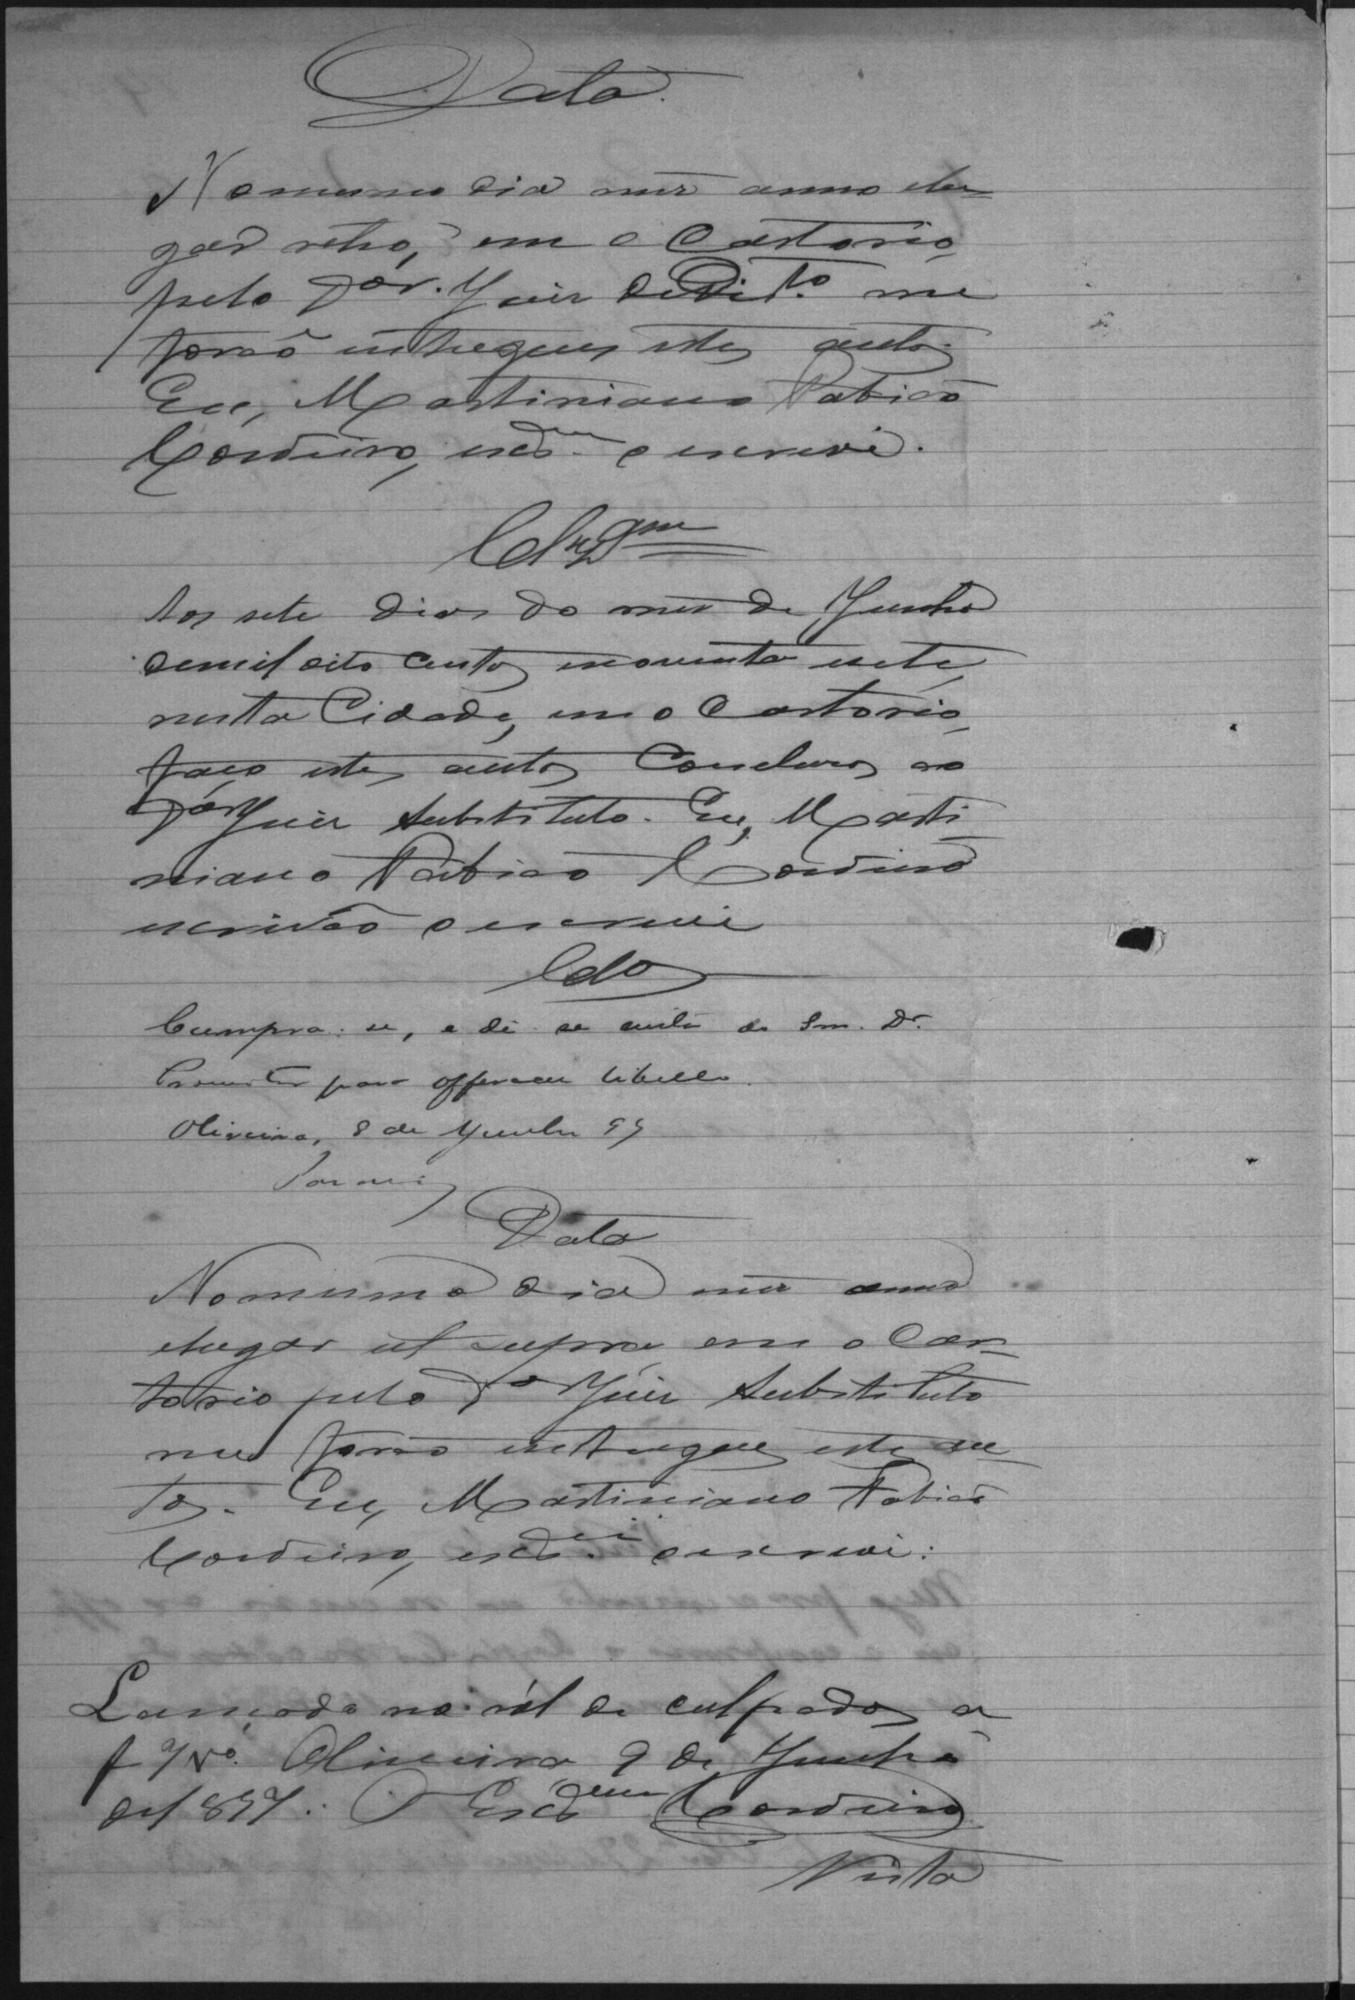 Data.
No mesmo dia mez anno elu=
gar retro, em o Cartorio,
pelo Dor. Juiz de Dirto. me
forão entregues estes autos.
Eu, Martiniano Patricio
Cordeiro, escram. o escrevi.
Clzam
Aos sete dias do mez de Junho
demil oito centos enoventa esete,
nesta Cidade, em o Cartorio,
faço estes autos Concluzos ao
Dor Juiz Substituto. Eu, Marti
niano Patricio Cordeiro
escrivão o escrevi
Clo
Cumpra-se, e dê-se vista ao Snr. Dr.
Promotor para offerecer libello.
Oliveira, 8 de Junho 97
Data
No mesmo dia mez anno
elugar ut supra em o Car=
torio pelo Dr Juiz Substituto
me forão entregues estes au=
tos. Eu, Martiniano Patricio
Cordeiro, escram. o escrevi.
Lançado no ról de culpados a
f 7vo. Oliveira 9 de Junho
de1897. O Escram Cordeiro
Vista